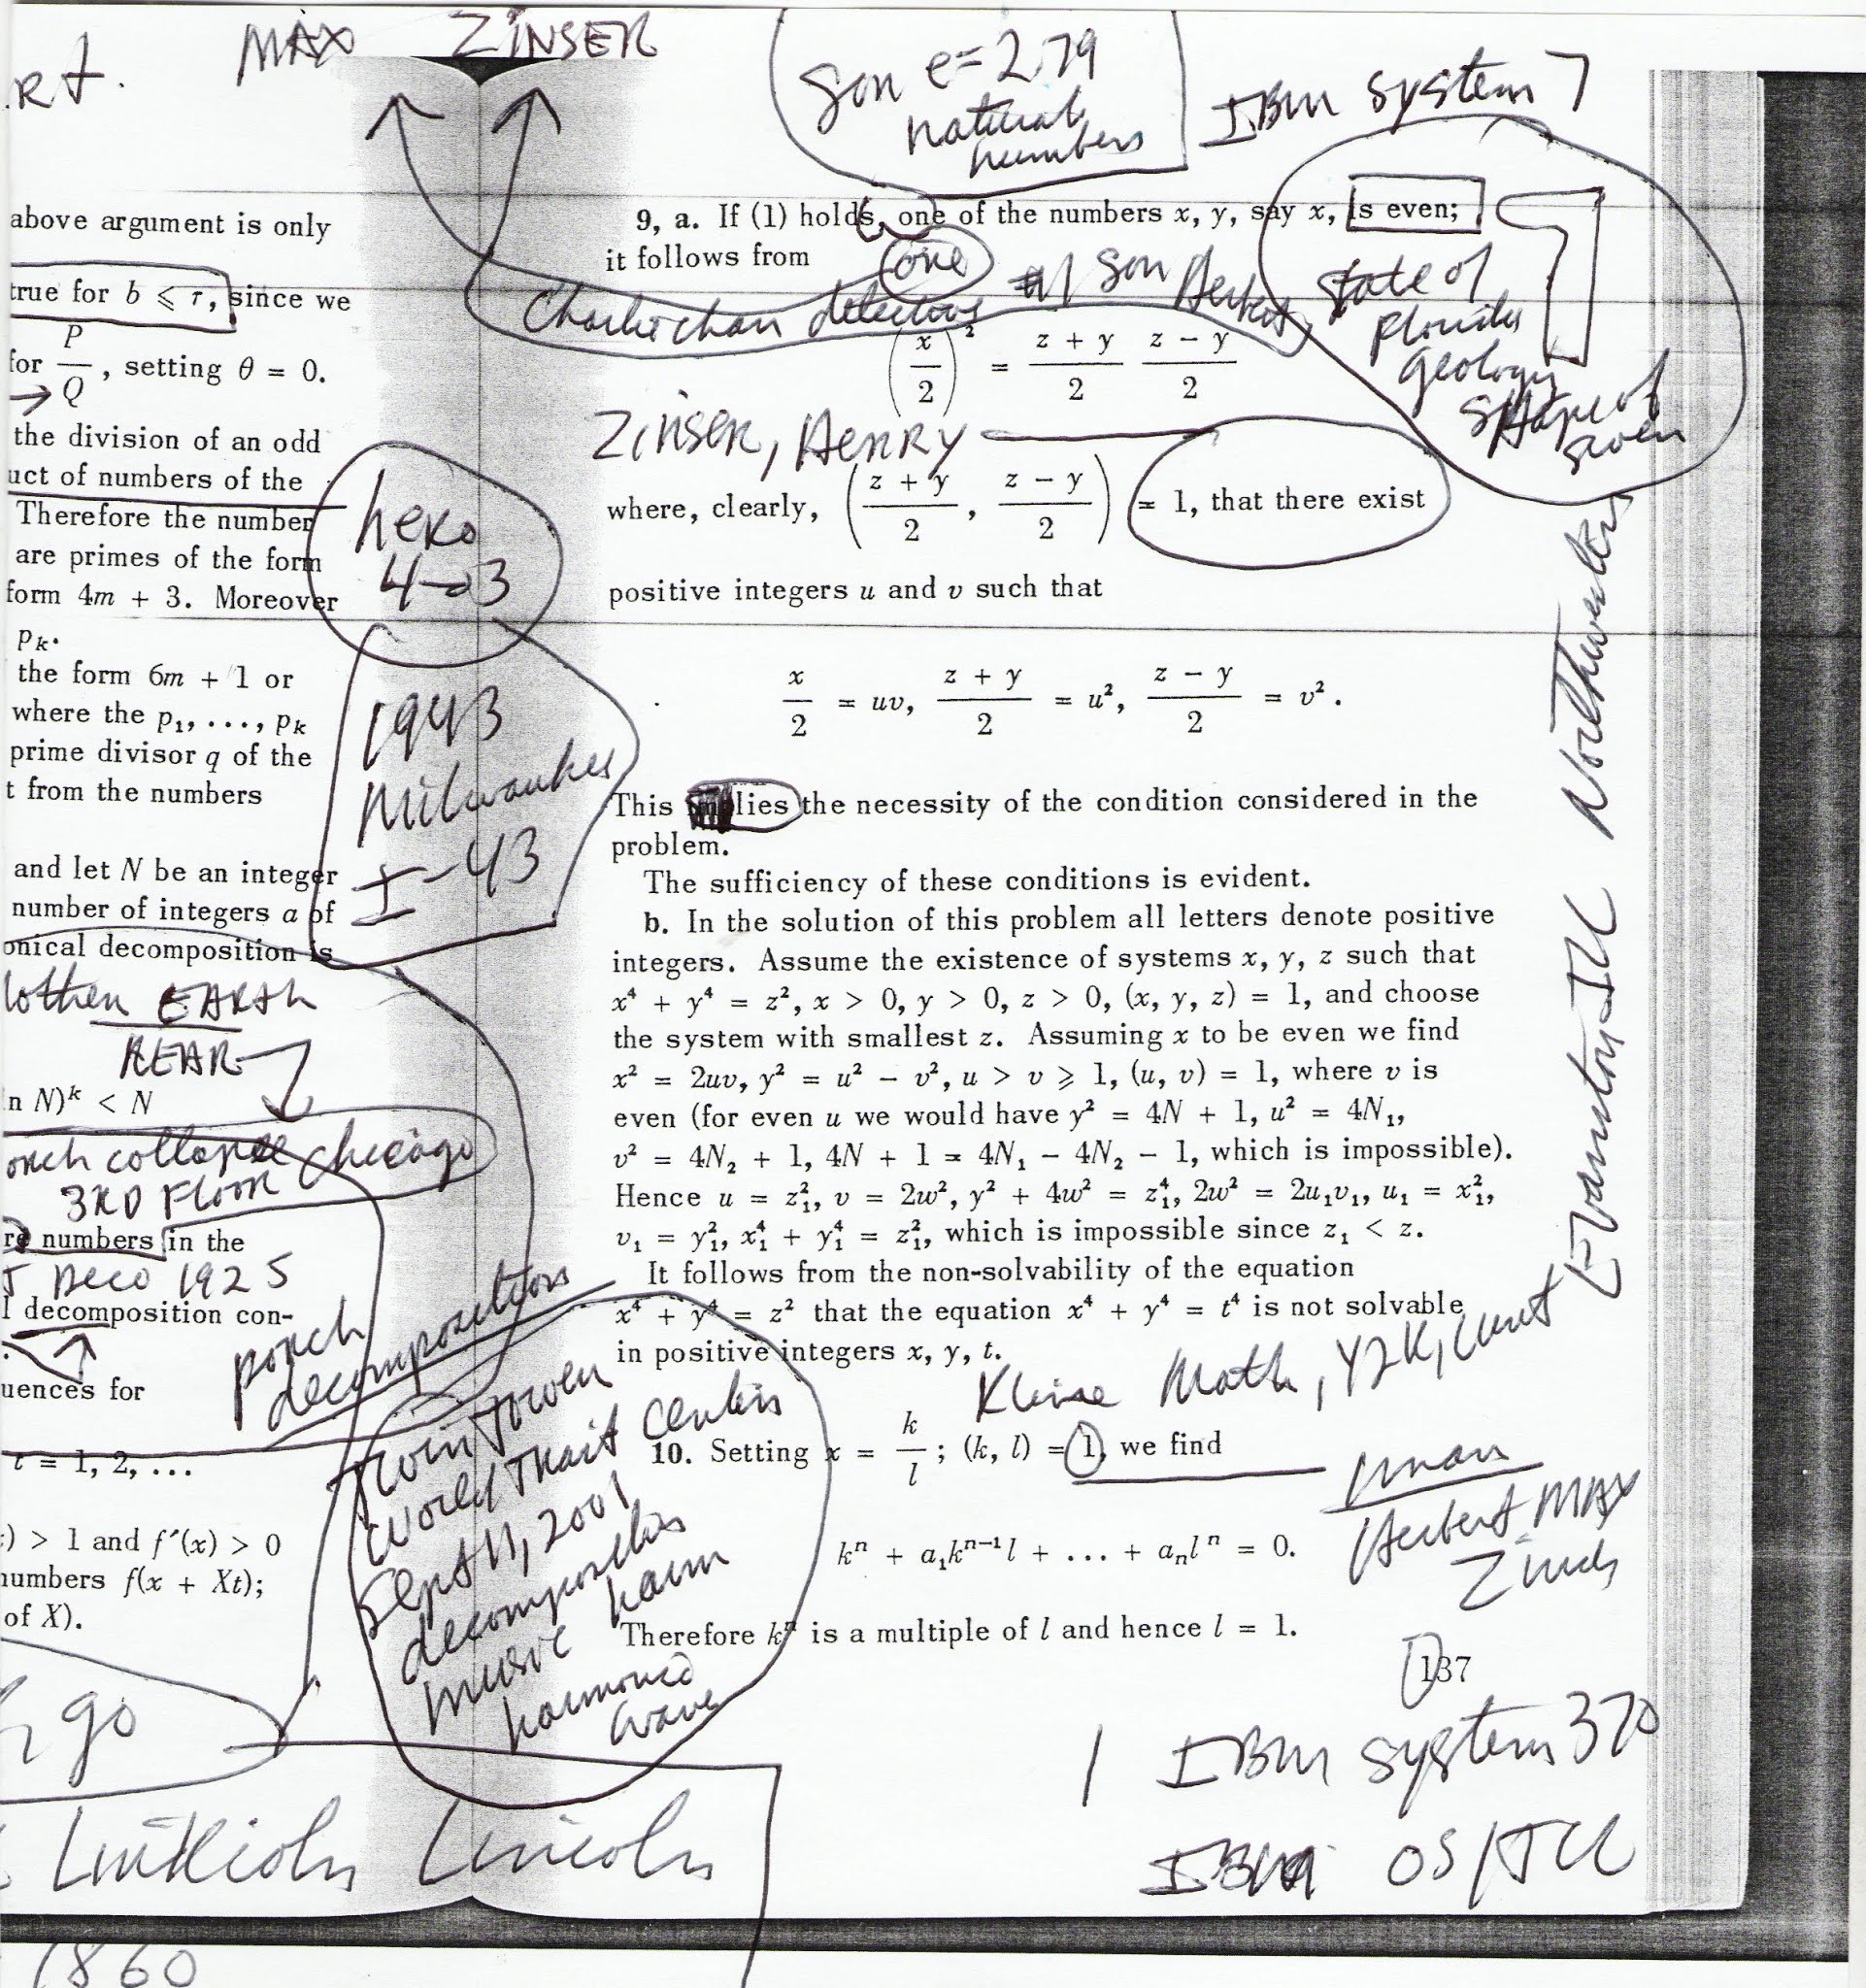 MAX ZINSER
son e=2.79
natural
numbers
IBM system 7
above argument is only
true for b ⩽ τ, since we
for P/Q, setting θ = 0.
the division of an odd
uct of numbers of the
Therefore the number
are primes of the form
form 4m + 3. Moreover
pₖ.
the form 6m + 1 or
where the p₁, ..., pₖ
prime divisor q of the
t from the numbers
and let N be an integer
number of integers a of
onical decomposition is
EARTH
REAR
n N)ᵏ < N
collapse Chicago
3RD FLOOR
numbers in the
Deco 1925
l decomposition con-
porch
decomposition
uences for
t = 1, 2, ...
) > 1 and f″(x) > 0
numbers f(x + Xt);
of X).
go
Lincoln
1860
hero
4→3
1943
Milwaukee
I-43
9, a. If (1) holds, one of the numbers x, y, say x, is even;
it follows from
one
#1 son
Charlie chan detective
state of
Florida
geology
shape of
seven
(x/2)² = (z + y)/2 (z − y)/2
ZINSER, HENRY
where, clearly, ((z + y)/2, (z − y)/2) = 1, that there exist
positive integers u and v such that
x/2 = uv, (z + y)/2 = u², (z − y)/2 = v².
This implies the necessity of the condition considered in the
problem.
The sufficiency of these conditions is evident.
b. In the solution of this problem all letters denote positive
integers. Assume the existence of systems x, y, z such that
x⁴ + y⁴ = z², x > 0, y > 0, z > 0, (x, y, z) = 1, and choose
the system with smallest z. Assuming x to be even we find
x² = 2uv, y² = u² − v², u > v ⩾ 1, (u, v) = 1, where v is
even (for even u we would have y² = 4N + 1, u² = 4N₁,
v² = 4N₂ + 1, 4N + 1 = 4N₁ − 4N₂ − 1, which is impossible).
Hence u = z₁², v = 2w², y² + 4w² = z₁⁴, 2w² = 2u₁v₁, u₁ = x₁²,
v₁ = y₁², x₁⁴ + y₁⁴ = z₁², which is impossible since z₁ < z.
It follows from the non-solvability of the equation
x⁴ + y⁴ = z² that the equation x⁴ + y⁴ = t⁴ is not solvable
in positive integers x, y, t.
Math, Y2K,
10. Setting x = k/l; (k, l) = 1, we find
Herbert MAX
kⁿ + a₁kⁿ⁻¹l + ... + aₙlⁿ = 0.
Therefore kⁿ is a multiple of l and hence l = 1.
137
Twin Tower
World Trait Center
Sept 11, 2001
decomposition
music
wave
Evanston, IL Northwestern
1 IBM system 370
IBM OS/JCL